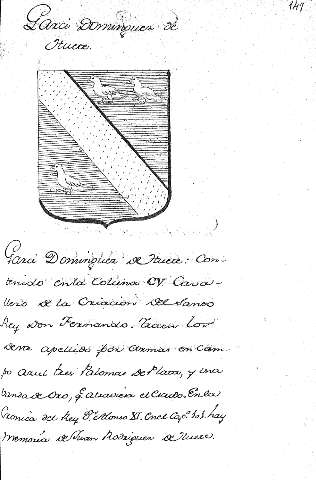 149
Garci Dominguez de
Huete.
Garci Dominguez de Huete: Con-
tenido en la Coluna CV. Cava-
llero de la Criacion del Santo
Rey Don Fernando. Traen los
deste apellido por armas en cam-
po azul tres Palomas de Plata, y una
banda de Oro, q̃ atraviesa el Escudo. En la
Cronica del Rey Dn. Alonso XI. en el Cap. hay
memoria de Juan Rodriguez de Huete.